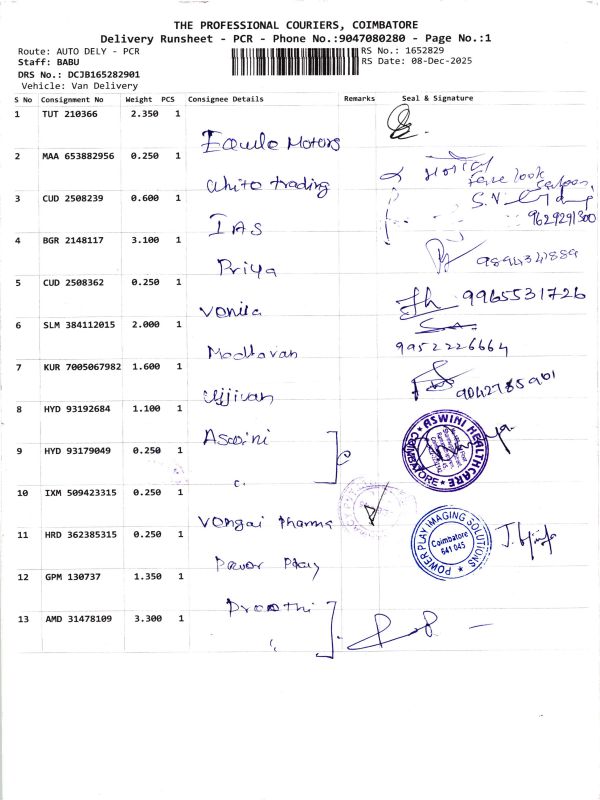 THE PROFESSIONAL COURIERS, COIMBATORE
Delivery Runsheet - PCR - Phone No.:9047080280 - Page No.:1
Route: AUTO DELY - PCR
RS No.: 1652829
Staff: BABU
RS Date: 08-Dec-2025
DRS No.: DCJB165282901
Vehicle: Van Delivery
S No Consignment No Weight PCS Consignee Details Remarks Seal & Signature
1 TUT 210366 2.350 1
Motors
2 MAA 653882956 0.250 1
trading
3 CUD 2508239 0.600 1
S.V
9629291300
IAS
4 BGR 2148117 3.100 1
Priya
9894341889
5 CUD 2508362 0.250 1
Vonila
9965531726
6 SLM 384112015 2.000 1
Madhavan
9952226664
7 KUR 7005067982 1.600 1
Ujjivan
8 HYD 93192684 1.100 1
Aswini
ASWINI HEALTHCARE
COIMBATORE
9 HYD 93179049 0.250 1
10 IXM 509423315 0.250 1
Vongai Pharma
POWER PLAY IMAGING SOLUTIONS
Coimbatore
641 045
11 HRD 362385315 0.250 1
Power Play
12 GPM 130737 1.350 1
13 AMD 31478109 3.300 1